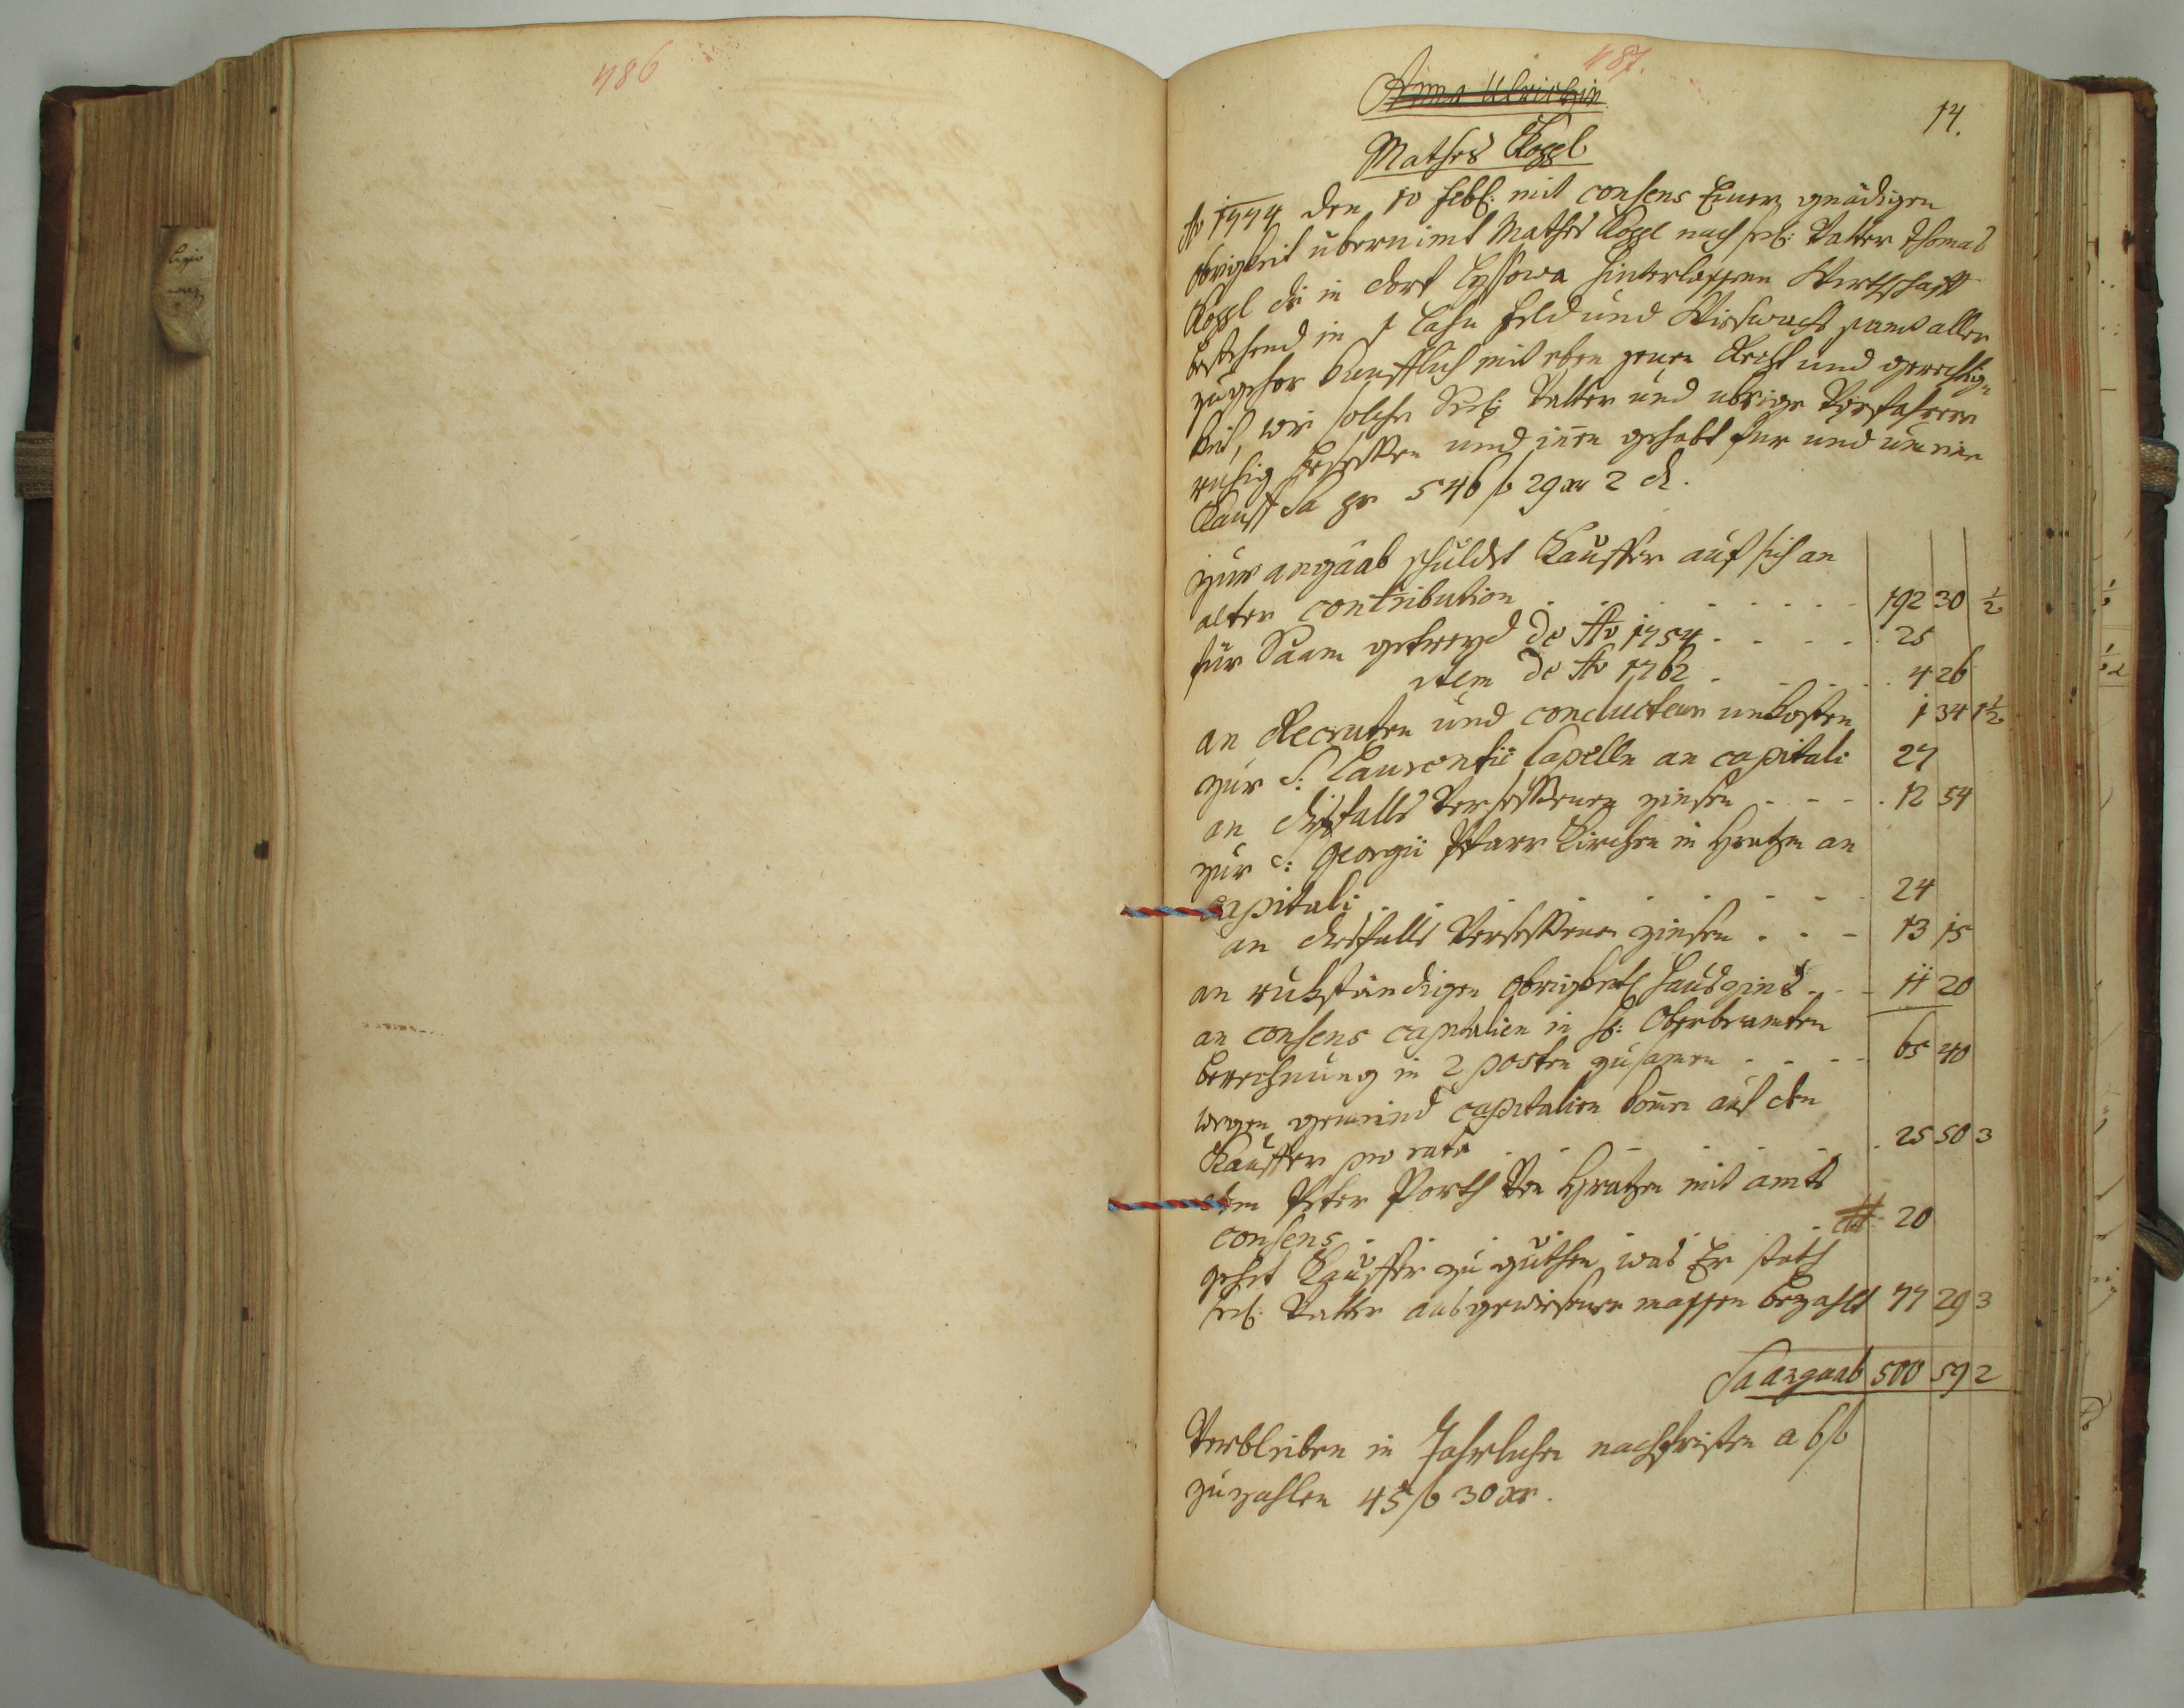 486
487.
14.
Anna Ulrichin
Mathes Koppl
Ao 1774 den 10 Febr: mit consens Einer gnädigen
obrigkeit übernimt Mathes Koppl nach seel: Vatter Thomas
Koppl die in dorf Lyssowa hinterlassene Wirthschafft
bestehend in 1 Lahn feld und Wiswachs samt aller
zugehör kaufflich mit eben jenen Recht und gerechtig-
keit, wie solche Seel: Vatter und übrige Vorfahrere
ruhig besessen und inen gehabt für und um eine
Kauff Sa pr 546 f 29 xr 2 d.
zur angaab schuldet Kauffer auf sich an
alter contribution 192 30 ½
für Saam getreyd de Ao 1754 25
item de Ao 1762 4 26
an Recruten und conducteur unkosten 1 34 1½
zur S: Laurentii Capelln an capitali 27
an disfalls Versessenen zinsen 12 54
zur S: Georgii Pfarr Kirchen in an
capitali 24
an disfalls Versessenen zinsen 13 15
an rukständigen obrigkeitl hauszins 11 20
an consens capitalien in H: Oberbeamten
berechnung in 2 posten zusamen 65 40
wegen gemeind capitalien kome auf den
Kauffer pro rata 25 50 3
dem Peter Porth Von mit amts
consens 20
gehet Kauffer zu guthen was Er statt
seel: Vatter ausgewiesener massen bezahlt 77 29 3
Sa angaab 500 59 2
Verbleiben in Jahrlichen nachfristen a 6 f
zuzahlen 45 f 30 xr.